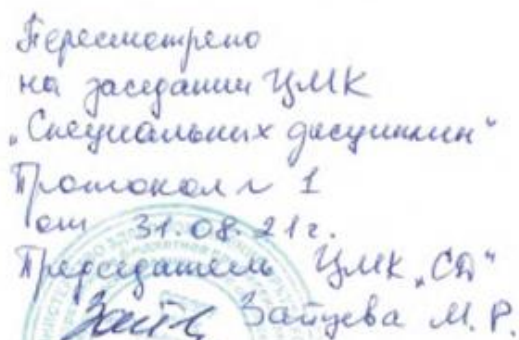 Пересмотрено
на заседании ЦМК
„Специальных дисциплин“
Протокол № 1
от 31.08.21г.
Председатель ЦМК „СД“
Зайцева М. Р.